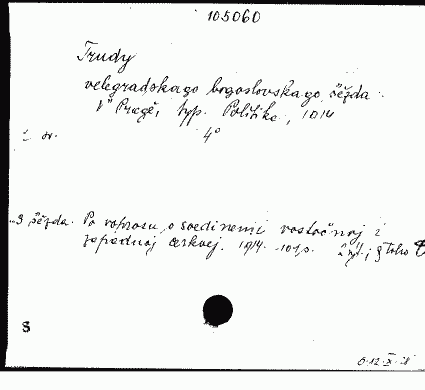 105060
Trudy
velegradskago bogoslovskago sězda
v" Pragě, typ. Politika, 1914
4°
3 sězda. Po voprosu o soedinenii vostočnoj i
zapadnoj cerkvej. 1914. 101 s.
S